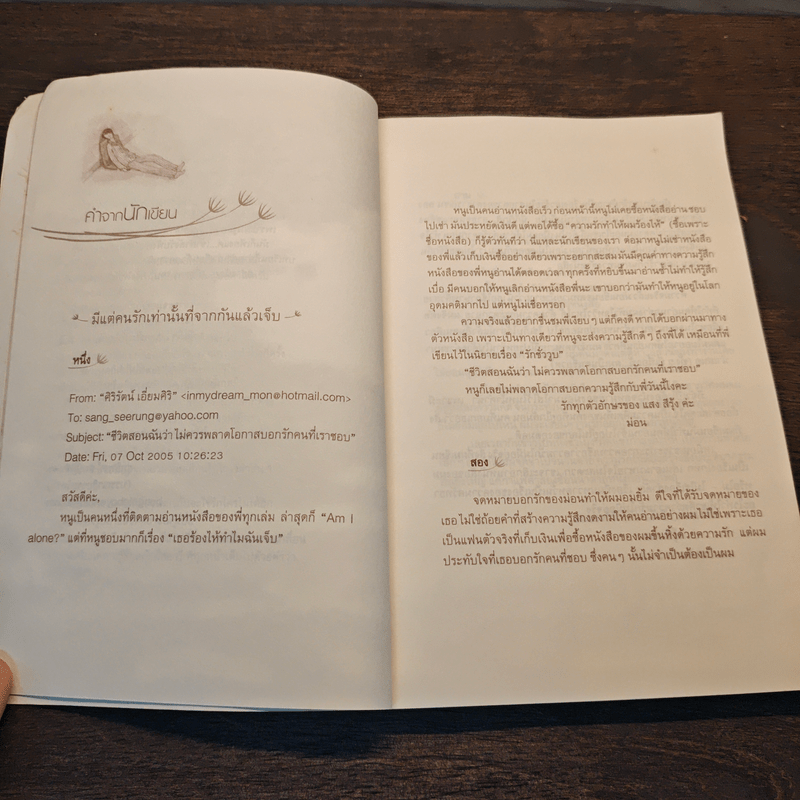 คำจากนักเขียน
มีแต่คนรักเท่านั้นที่จากกันแล้วเจ็บ
หนึ่ง
From: "ศิริรัตน์ เอี่ยมศิริ" <inmydream_mon@hotmail.com>
To: sang_seerung@yahoo.com
Subject: "ชีวิตสอนฉันว่า ไม่ควรพลาดโอกาสบอกรักคนที่เราชอบ"
Date: Fri, 07 Oct 2005 10:26:23
สวัสดีค่ะ,
หนูเป็นคนหนึ่งที่ติดตามอ่านหนังสือของพี่ทุกเล่ม ล่าสุดก็ "Am I
alone?" แต่ที่หนูชอบมากก็เรื่อง "เธอร้องไห้ทำไมฉันเจ็บ"
หนูเป็นคนอ่านหนังสือเร็ว ก่อนหน้านี้หนูไม่เคยซื้อหนังสืออ่าน ชอบ
ไปเช่า มันประหยัดเงินดี แต่พอได้ซื้อ "ความรักทำให้ผมร้องไห้" (ซื้อเพราะ
ชื่อหนังสือ) ก็รู้ตัวทันทีว่า นี่แหละนักเขียนของเรา ต่อมาหนูไม่เช่าหนังสือ
ของพี่แล้วเก็บเงินซื้ออย่างเดียวเพราะอยากสะสม มันมีคุณค่าทางความรู้สึก
หนังสือของพี่หนูอ่านได้ตลอดเวลา ทุกครั้งที่หยิบขึ้นมาอ่านซ้ำไม่ทำให้รู้สึก
เบื่อ มีคนบอกให้หนูเลิกอ่านหนังสือพี่นะ เขาบอกว่ามันทำให้หนูอยู่ในโลก
อุดมคติมากไป แต่หนูไม่เชื่อหรอก
ความจริงแล้วอยากชื่นชมพี่เงียบๆ แต่ก็คงดี หากได้บอกผ่านมาทาง
ตัวหนังสือ เพราะเป็นทางเดียวที่หนูจะส่งความรู้สึกดีๆ ถึงพี่ได้ เหมือนที่พี่
เขียนไว้ในนิยายเรื่อง "รักชั่ววูบ"
"ชีวิตสอนฉันว่า ไม่ควรพลาดโอกาสบอกรักคนที่เราชอบ"
หนูก็เลยไม่พลาดโอกาสบอกความรู้สึกกับพี่วันนี้ไงคะ
รักทุกตัวอักษรของ แสง สีรุ้ง ค่ะ
ม่อน
สอง
จดหมายบอกรักของม่อนทำให้ผมอมยิ้ม ดีใจที่ได้รับจดหมายของ
เธอ ไม่ใช่ถ้อยคำที่สร้างความรู้สึกงดงามให้คนอ่านอย่างผม ไม่ใช่เพราะเธอ
เป็นแฟนตัวจริงที่เก็บเงินเพื่อซื้อหนังสือของผมขึ้นหิ้งด้วยความรัก แต่ผม
ประทับใจที่เธอบอกรักคนที่ชอบ ซึ่งคนๆ นั้นไม่จำเป็นต้องเป็นผม